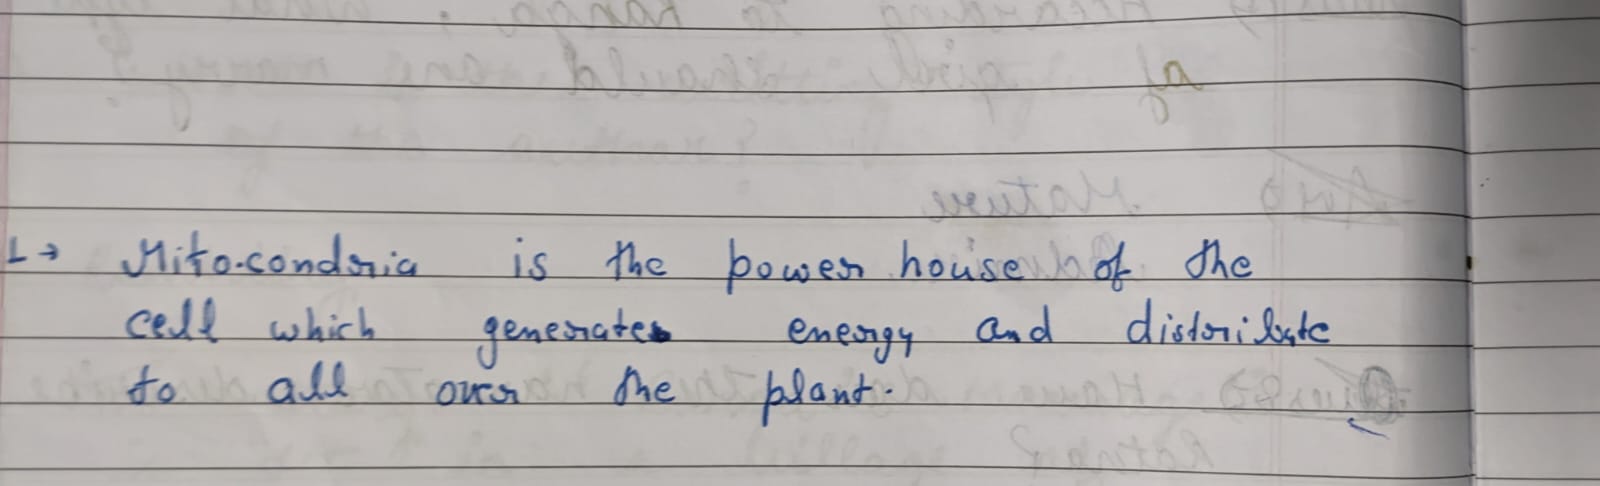 1→ Mito.condria is the power house of the
cell which generates energy and distribute
to all over the plant.